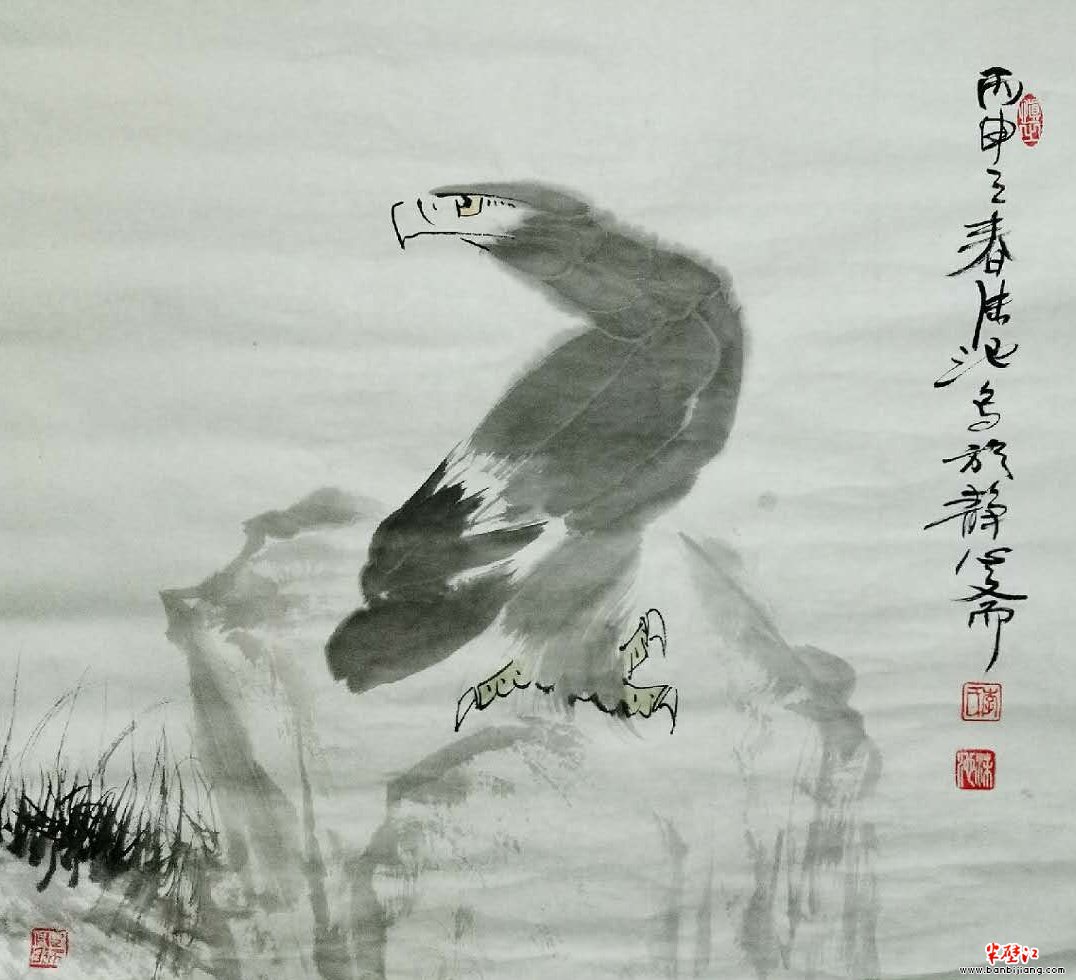 丙申立春洙沱写於静虚斋
半壁江
www.banbijiang.com